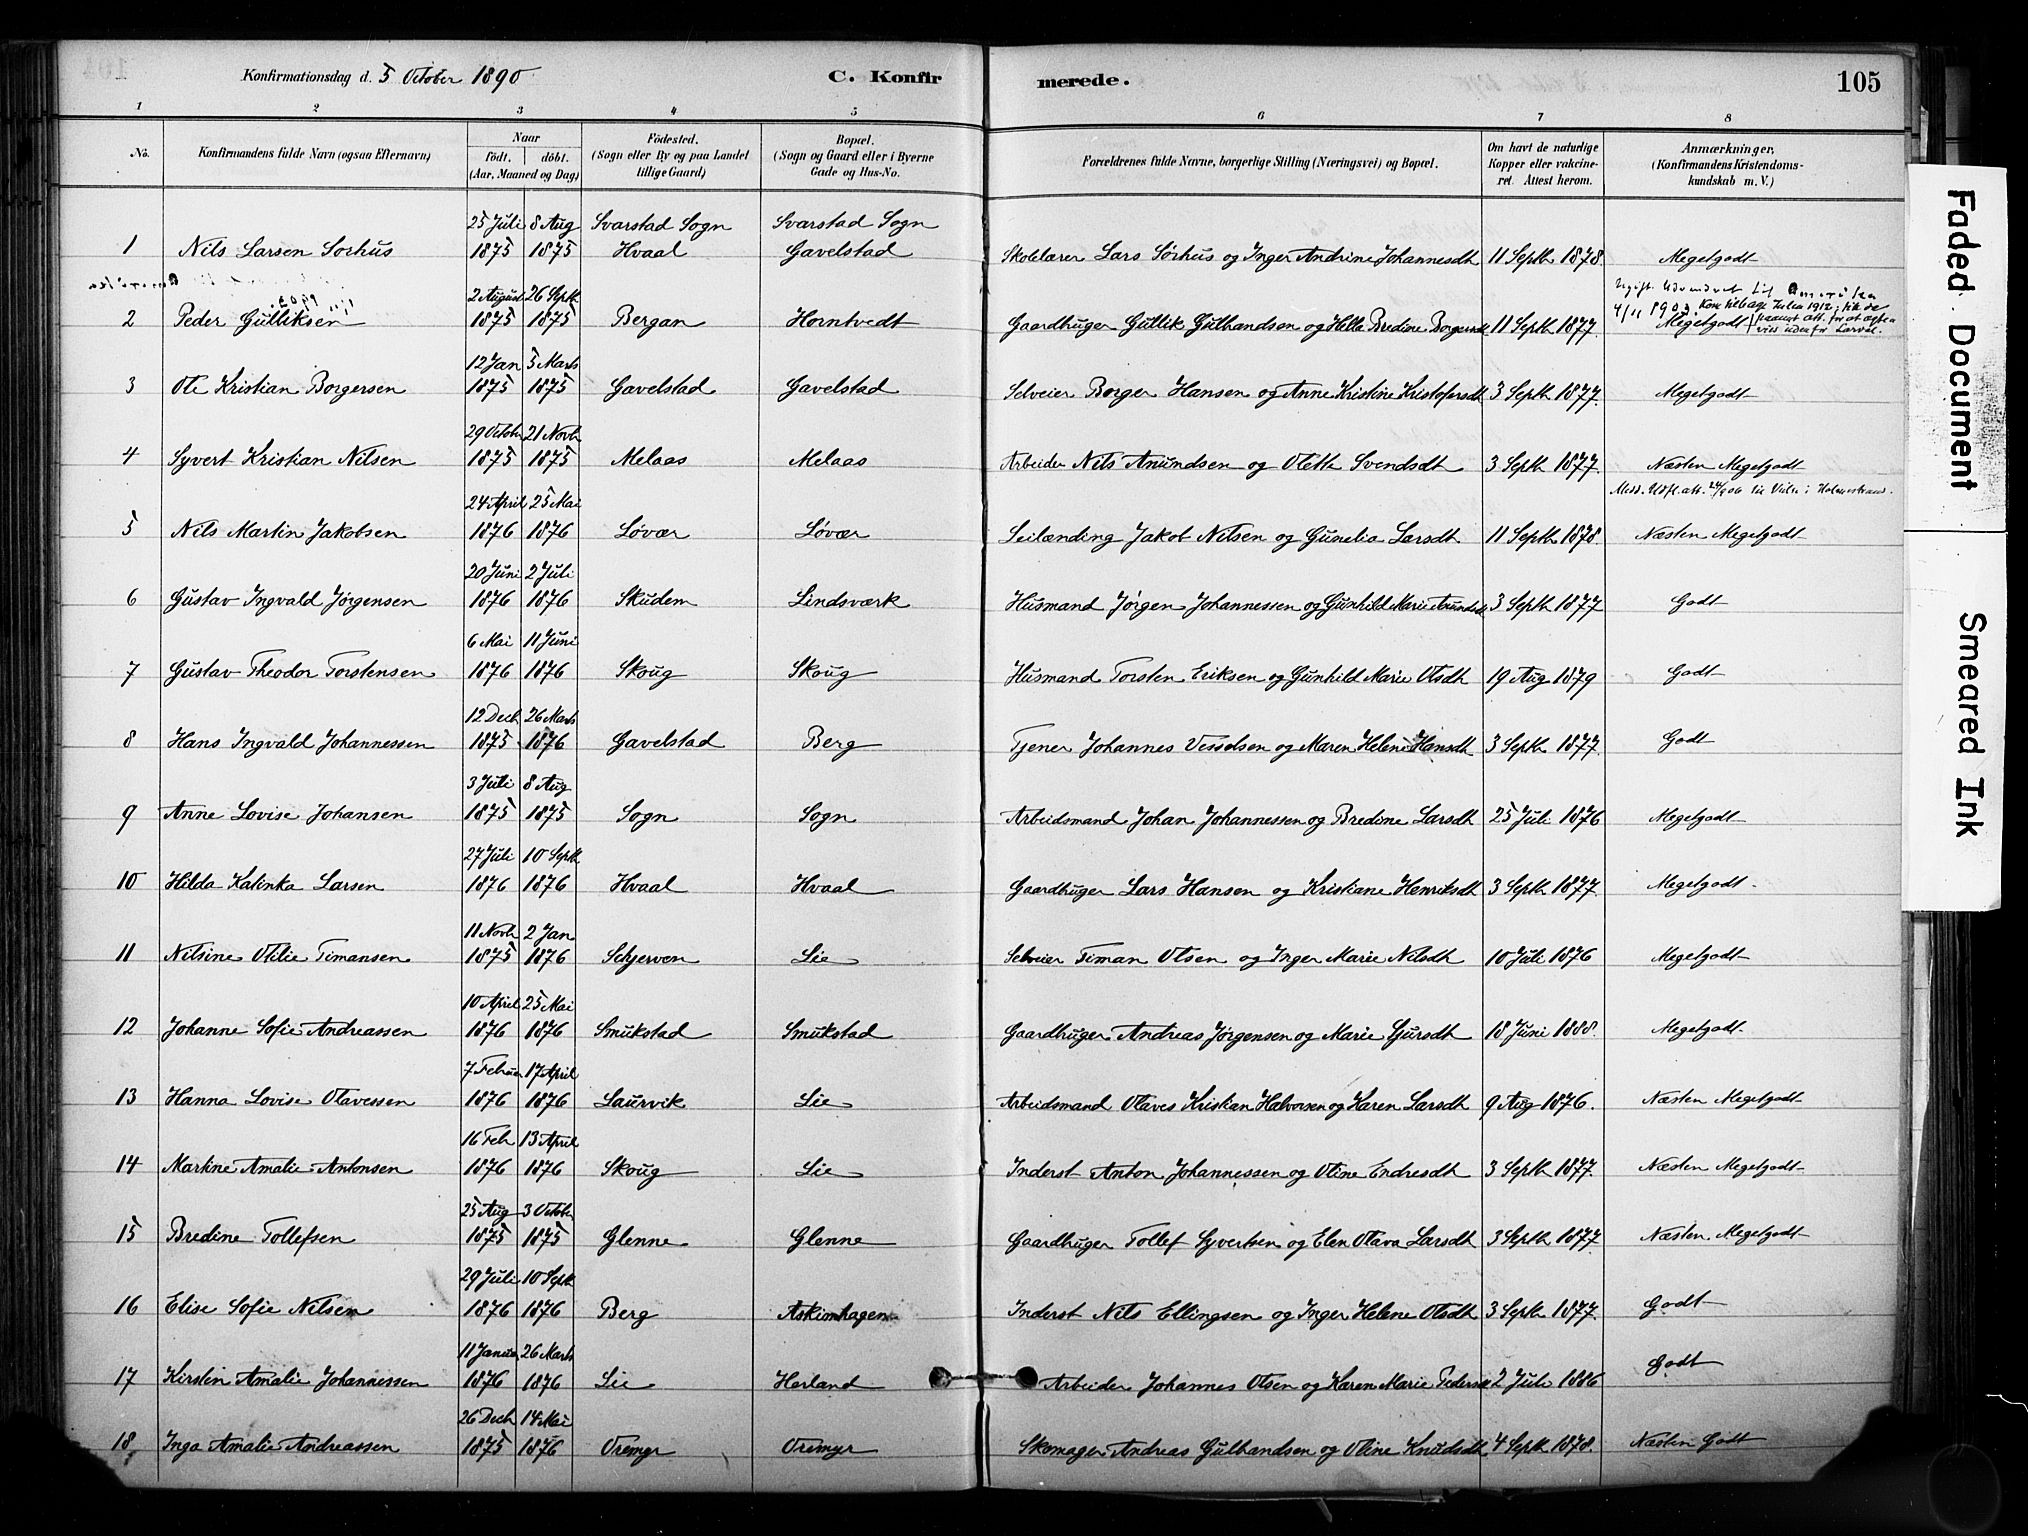 Konfirmationsdag d. 5 October 1890 C. Konfirmerede. 105
1 2 3 4 5 6 7 8
No. Konfirmandens fulde Navn (ogsaa Efternavn) Naar födt. döbt. (Aar, Maaned og Dag) Födested. (Sogn eller By og paa Landet tillige Gaard) Bopæl. (Sogn og Gaard eller i Byerne Gade og Hus-No. Forældrenes fulde Navne, borgerlige Stilling (Næringsvei) og Bopæl. Om havt de naturlige Kopper eller vakcineret. Attest herom. Anmærkninger, (Konfirmandens Kristendomskundskab m. V.)
25 Juli 8 Aug Svarstad Sogn Svarstad Sogn
1 Nils Larsen Sørhus 1875 1875 Hvaal Gavelstad Skolelærer Lars Sørhus og Inger Andrine Johannesdt 11 Septb 1878. Megetgodt
2 August 26 Septb Ugift. Udvandret til Amerika
4/11 1903. Kom tilbage Julen 1912;
2 Peder Gulliksen 1875 1875 Bergan Horntvedt Gaardbruger Gullik Gulbandsen og Helle Bredine Borgersdt 11 Septb 1877. Megetgodt
12 Jan 5 Marts
3 Ole Kristian Borgersen 1875 1875 Gavelstad Gavelstad Selveier Borger Hansen og Anne Kristine Kristofersdt 3 Septb 1877. Megetgodt
29 Octobr 21 Novb
4 Syvert Kristian Nilsen 1875 1875 Melaas Melaas Arbeider Nils Anundsen og Olette Svendsdt 3 Septb 1877. Næsten Megetgodt
24 April 25 Mai Medd. Udfl.att. 24/906 til Vielse i Holmestrand.
5 Nils Martin Jakobsen 1876 1876 Løvær Løvær Leilænding Jakob Nilsen og Gunelia Larsdt 11 Septb 1878. Næsten Megetgodt
20 Juni 2 Juli
6 Gustav Ingvald Jørgensen 1876 1876 Skudem Lindsværk Husmand Jørgen Johannessen og Gunhild Marie Anundsdt 3 Septb 1877 Godt
6 Mai 11 Juni
7 Gustav Theodor Torstensen 1876 1876 Skoug Skoug Husmand Torsten Eriksen og Gunhild Marie Olsdt 19 Aug 1879 Godt
12 Decb 26 Marts
8 Hans Ingvald Johannessen 1875 1876 Gavelstad Berg Tjener Johannes Vesselsen og Maren Helene Hansdt 3 Septb 1877. Godt
3 Juli 8 Aug
9 Anne Lovise Johansen 1875 1875 Sogn Sogn Arbeidsmand Johan Johannessen og Bredine Larsdt 25 Juli 1876 Megetgodt
27 Juli 10 Septb
10 Hilda Kalinka Larsen 1876 1876 Hvaal Hvaal Gaardbruger Lars Hansen og Kristiane Henriksdt 3 Septb 1877. Megetgodt.
11 Novb 2 Jan
11 Nilsine Otilie Timansen 1875 1876 Schjerven Lie Selveier Timan Olsen og Inger Marie Nilsdt 10 Juli 1876 Megetgodt
10 April 25 Mai
12 Johanne Sofie Andreassen 1876 1876 Smukstad Smukstad Gaardbruger Andreas Jørgensen og Marie Gjursdt 18 Juni 1888. Megetgodt.
7 Februar 17 April
13 Hanna Lovise Olavessen 1876 1876 Laurvik Lie Arbeidsmand Olaves Kristian Halvorsen og Karen Larsdt 9 Aug 1876. Næsten Megetgodt
16 Feb 13 April
14 Martine Amalie Antonsen 1876 1876 Skoug Lie Inderst Anton Johannessen og Oline Endresdt 3 Septb 1877. Næsten Megetgodt
25 Aug 3 October
15 Bredine Tollefsen 1875 1875 Glenne Glenne Gaardbruger Tollef Syvertsen og Elen Olava Larsdt 3 Septb 1877 Næsten Megetgodt
29 Juli 10 Septb
16 Elise Sofie Nilsen 1876 1876 Berg Askimhagen Inderst Nils Ellingsen og Inger Helene Olsdt 3 Septb 1877. Godt
11 Januar 26 Marts
17 Kirstin Amalie Johannessen 1876 1876 Lie Herland Arbeider Johannes Olsen og Karen Marie Pedersdt 2 Juli 1886 Godt
26 Decb 14 Mai
18 Inga Amalie Andreassen 1875 1876 Oremyr Oremyr Skomager Andreas Gulbandsen og Oline Knudsdt 4 Septb 1878. Næsten Godt
Faded Document
Smeared Ink